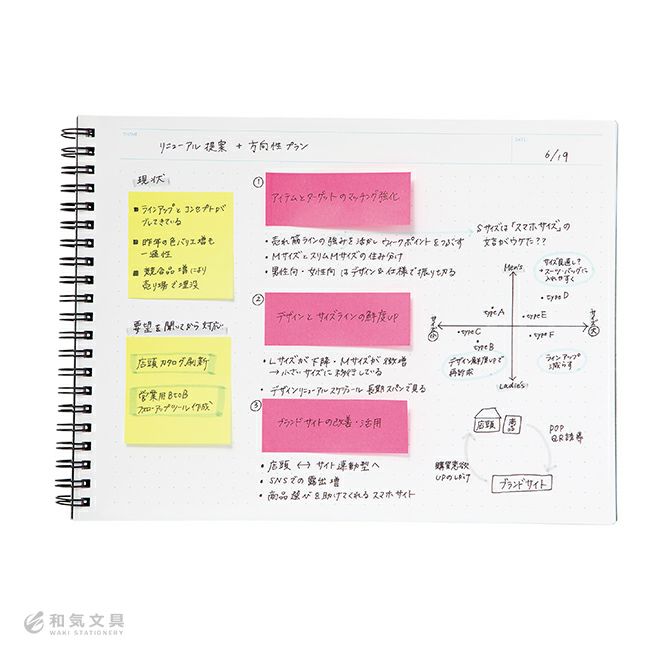 リニューアル提案 + 方向性プラン
DATE
6/19
現状
ラインアップとコンセプトが
ブレてきている
昨年の色バリエ増も
一過性
競合品増により
売り場で埋没
要望を聞いてから対応
店頭カタログ刷新
営業用BtoB
フォローアップツール作成
① アイテムとターゲットのマッチング強化
・売れ筋ラインの強みを活かしウィークポイントをつぶす
・MサイズとスリムMサイズの住み分け
・男性向・女性向はデザイン&仕様で振り切る
② デザインとサイズラインの鮮度UP
・Lサイズが下降・Mサイズが微増
→小さいサイズに移行している
・デザインリニューアルスケジュール長期スパンで見る
③ ブランドサイトの改善・活用
・店頭 ↔ サイト連動型へ
・SNSでの露出増
・商品選びを助けてくれるスマホサイト
Sサイズは「スマホサイズ」の
文言がウケた??
サイズ見直し?
→スーツ・バッグに
入れやすく
Men's
・type A
・type D
・type E
サイズ小
サイズ大
・type C
・type F
・type B
デザイン鮮度UPで
再形成
ラインアップ
減らす
Ladie's
店頭
商品
POP
QR誘導
購買意欲
UPのしかけ
ブランドサイト
和気文具
WAKI STATIONERY